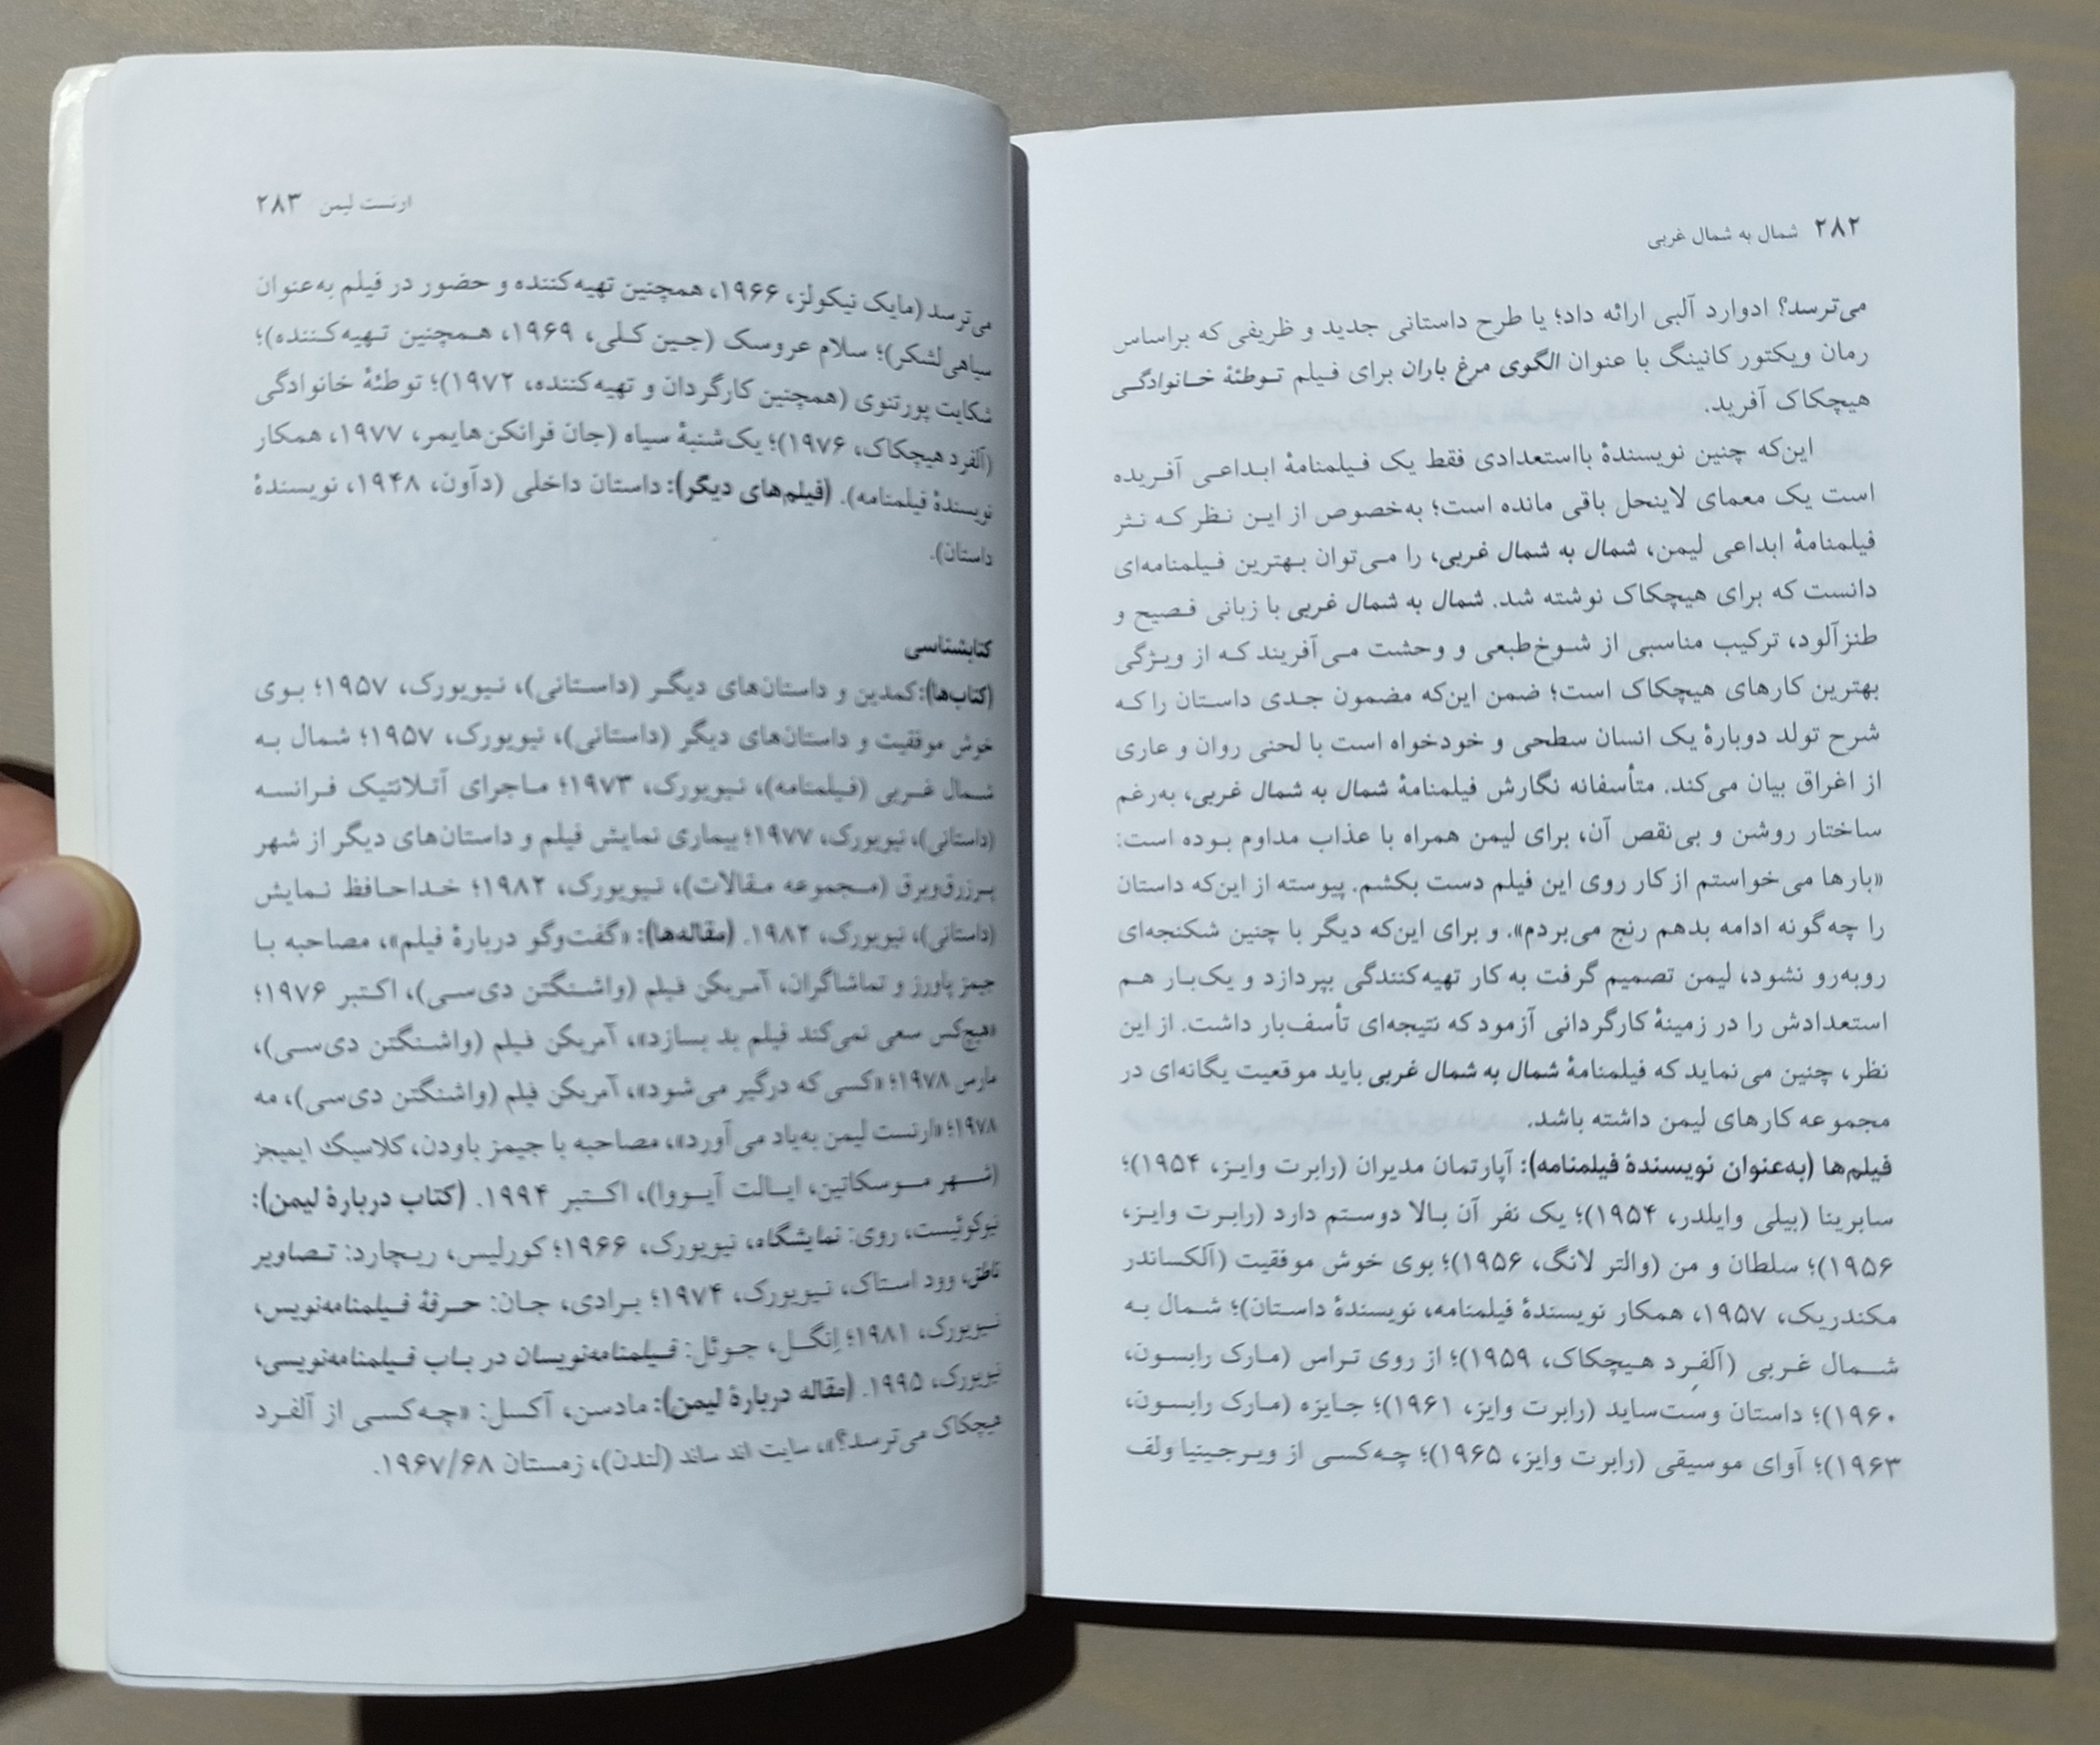 ۲۸۲ شمال به شمال غربی
می‌ترسد؟ ادوارد آلبی ارائه داد؛ یا طرح داستانی جدید و ظریفی که براساس
رمان ویکتور کانینگ با عنوان الگوی مرغ باران برای فیلم توطئهٔ خانوادگی
هیچکاک آفرید.
این‌که چنین نویسندهٔ بااستعدادی فقط یک فیلمنامهٔ ابداعی آفریده
است یک معمای لاینحل باقی مانده است؛ به‌خصوص از این نظر که نثر
فیلمنامهٔ ابداعی لیمن، شمال به شمال غربی، را می‌توان بهترین فیلمنامه‌ای
دانست که برای هیچکاک نوشته شد. شمال به شمال غربی با زبانی فصیح و
طنزآلود، ترکیب مناسبی از شوخ‌طبعی و وحشت می‌آفریند که از ویژگی
بهترین کارهای هیچکاک است؛ ضمن این‌که مضمون جدی داستان را که
شرح تولد دوبارهٔ یک انسان سطحی و خودخواه است با لحنی روان و عاری
از اغراق بیان می‌کند. متأسفانه نگارش فیلمنامهٔ شمال به شمال غربی، به‌رغم
ساختار روشن و بی‌نقص آن، برای لیمن همراه با عذاب مداوم بوده است:
«بارها می‌خواستم از کار روی این فیلم دست بکشم. پیوسته از این‌که داستان
را چه‌گونه ادامه بدهم رنج می‌بردم». و برای این‌که دیگر با چنین شکنجه‌ای
روبه‌رو نشود، لیمن تصمیم گرفت به کار تهیه‌کنندگی بپردازد و یک‌بار هم
استعدادش را در زمینهٔ کارگردانی آزمود که نتیجه‌ای تأسف‌بار داشت. از این
نظر، چنین می‌نماید که فیلمنامهٔ شمال به شمال غربی باید موقعیت یگانه‌ای در
مجموعه کارهای لیمن داشته باشد.
فیلم‌ها (به‌عنوان نویسندهٔ فیلمنامه): آپارتمان مدیران (رابرت وایز، ۱۹۵۴)؛
سابرینا (بیلی وایلدر، ۱۹۵۴)؛ یک نفر آن بالا دوستم دارد (رابرت وایز،
۱۹۵۶)؛ سلطان و من (والتر لانگ، ۱۹۵۶)؛ بوی خوش موفقیت (آلکساندر
مکندریک، ۱۹۵۷، همکار نویسندهٔ فیلمنامه، نویسندهٔ داستان)؛ شمال به
شمال غربی (آلفرِد هیچکاک، ۱۹۵۹)؛ از روی تراس (مارک رابسون،
۱۹۶۰)؛ داستان وست‌ساید (رابرت وایز، ۱۹۶۱)؛ جایزه (مارک رابسون،
۱۹۶۳)؛ آوای موسیقی (رابرت وایز، ۱۹۶۵)؛ چه‌کسی از ویرجینیا ولف
ارنست لیمن ۲۸۳
می‌ترسد (مایک نیکولز، ۱۹۶۶، همچنین تهیه‌کننده و حضور در فیلم به‌عنوان
سیاهی‌لشکر)؛ سلام عروسک (جین کلی، ۱۹۶۹، همچنین تهیه‌کننده)؛
شکایت پورتنوی (همچنین کارگردان و تهیه‌کننده، ۱۹۷۲)؛ توطئهٔ خانوادگی
(آلفرد هیچکاک، ۱۹۷۶)؛ یک‌شنبهٔ سیاه (جان فرانکن‌هایمر، ۱۹۷۷، همکار
نویسندهٔ فیلمنامه). (فیلم‌های دیگر): داستان داخلی (دآون، ۱۹۴۸، نویسندهٔ
داستان).
کتابشناسی
(کتاب‌ها): کمدین و داستان‌های دیگر (داستانی)، نیویورک، ۱۹۵۷؛ بوی
خوش موفقیت و داستان‌های دیگر (داستانی)، نیویورک، ۱۹۵۷؛ شمال به
شمال غربی (فیلمنامه)، نیویورک، ۱۹۷۳؛ ماجرای آتلانتیک فرانسه
(داستانی)، نیویورک، ۱۹۷۷؛ بیماری نمایش فیلم و داستان‌های دیگر از شهر
پرزرق‌وبرق (مجموعه مقالات)، نیویورک، ۱۹۸۲؛ خداحافظ نمایش
(داستانی)، نیویورک، ۱۹۸۲. (مقاله‌ها): «گفت‌وگو دربارهٔ فیلم»، مصاحبه با
جیمز پاورز و تماشاگران، آمریکن فیلم (واشنگتن دی‌سی)، اکتبر ۱۹۷۶؛
«هیچ‌کس سعی نمی‌کند فیلم بد بسازد»، آمریکن فیلم (واشنگتن دی‌سی)،
مارس ۱۹۷۸؛ «کسی که درگیر می‌شود»، آمریکن فیلم (واشنگتن دی‌سی)، مه
۱۹۷۸؛ «ارنست لیمن به‌یاد می‌آورد»، مصاحبه با جیمز باودن، کلاسیک ایمیجز
(شهر موسکاتین، ایالت آیووا)، اکتبر ۱۹۹۴. (کتاب دربارهٔ لیمن):
نیوکوئیست، روی: نمایشگاه، نیویورک، ۱۹۶۶؛ کورلیس، ریچارد: تصاویر
ناطق، وود استاک، نیویورک، ۱۹۷۴؛ برادی، جان: حرفهٔ فیلمنامه‌نویس،
نیویورک، ۱۹۸۱؛ اِنگل، جوئل: فیلمنامه‌نویسان در باب فیلمنامه‌نویسی،
نیویورک، ۱۹۹۵. (مقاله دربارهٔ لیمن): مادسن، آکسل: «چه‌کسی از آلفرد
هیچکاک می‌ترسد؟»، سایت اند ساند (لندن)، زمستان ۱۹۶۷/۶۸.